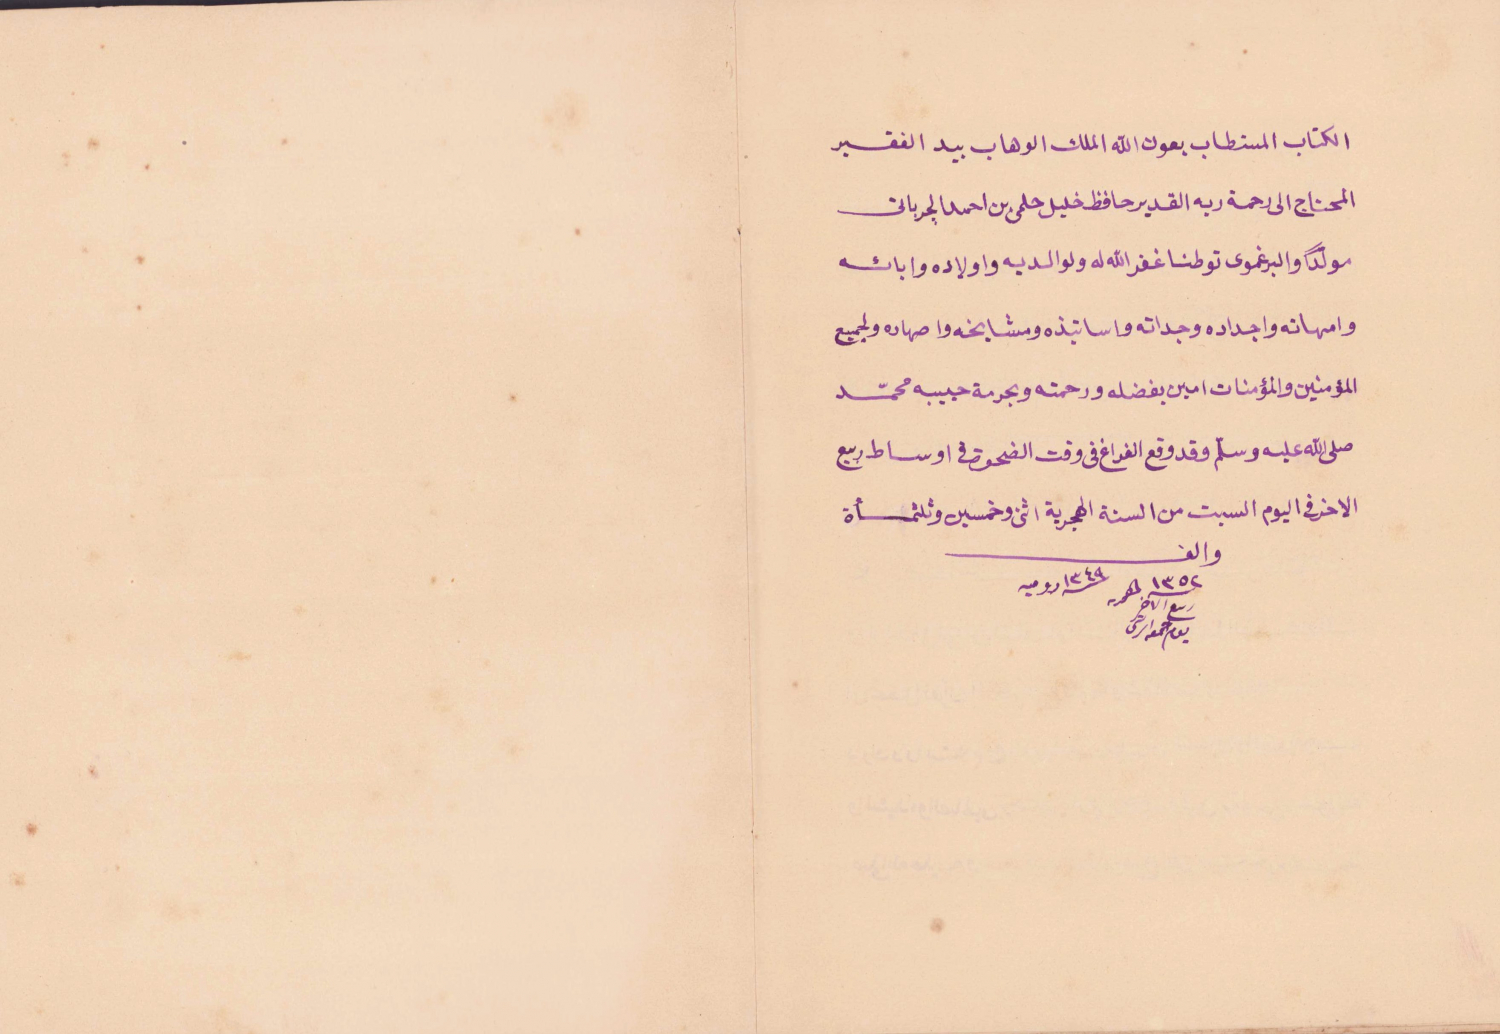 الكتاب المستطاب بعون الله الملك الوهاب بيد الفقير
المحتاج الى رحمة ربه القدير حافظ خليل حلمى بن احمد الجربانى
مولدًا والبرغموى توطنا غفر الله له ولوالديه واولاده وابائه
وامهاته واجداده وجداته واساتيذه ومشايخه واصهاره ولجميع
المؤمنين والمؤمنات امين بفضله ورحمته وبحرمة حبيبه محمّد
صلى الله عليه وسلّم وقد وقع الفراغ فى وقت الضحوة فى اوساط ربيع
الاخر فى اليوم السبت من السنة الهجرية اثنى وخمسين وثلثمأة
والف
١٣٥٢ ١٣٤٩ روميه
ربيع الآخر
يوم